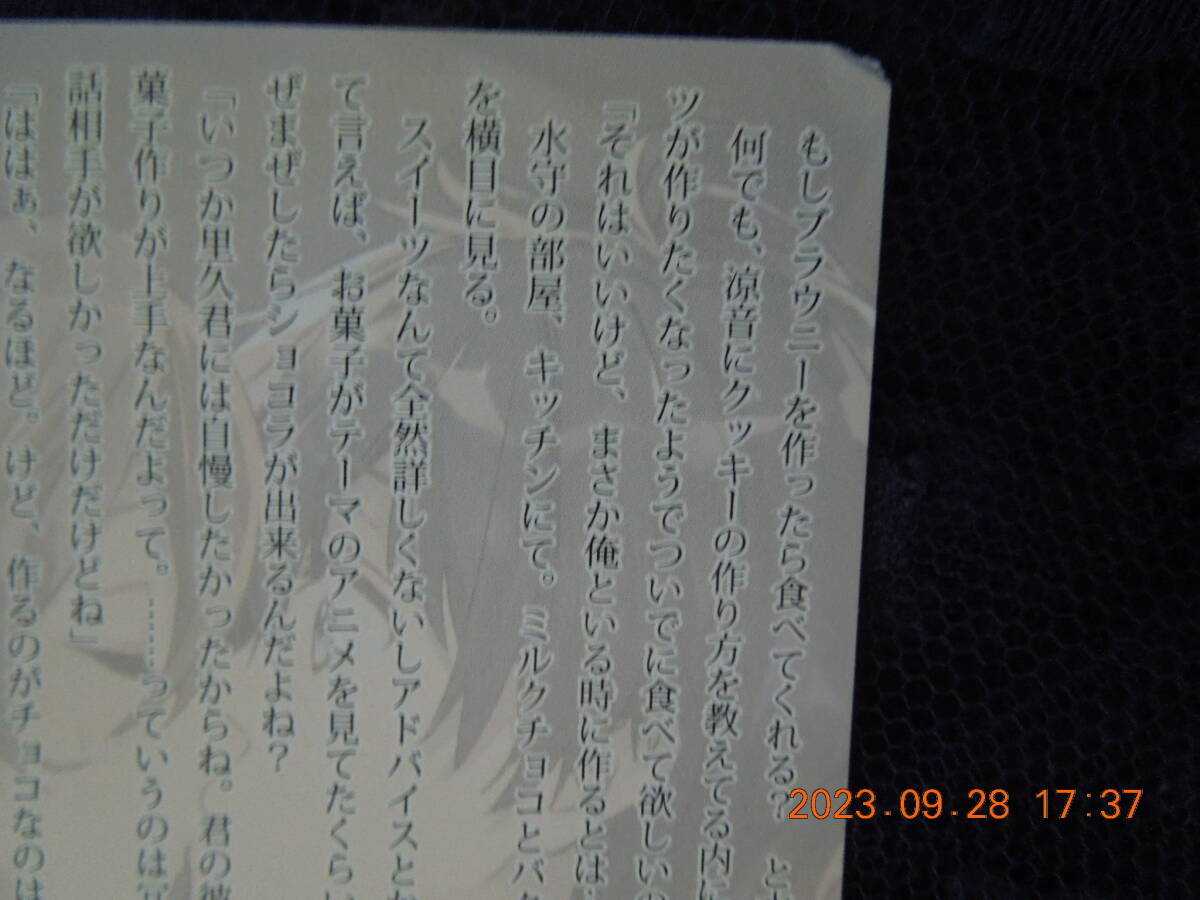 もしブラウニーを作ったら食べてくれる？　と
何でも、涼音にクッキーの作り方を教えてる内に
ツが作りたくなったようでついでに食べて欲しいの
『それはいいけど、まさか俺といる時に作るとは
水守の部屋、キッチンにて。ミルクチョコとバ
を横目に見る。
スイーツなんて全然詳しくないしアドバイスと
て言えば、お菓子がテーマのアニメを見てたくらい
ぜまぜしたらショコラが出来るんだよね？
『いつか里久君には自慢したかったからね。君の彼
菓子作りが上手なんだよって。……っていうのは冗
話相手が欲しかっただけだけどね』
『ははぁ、なるほど。けど、作るのがチョコなのは
2023.09.28 17:37